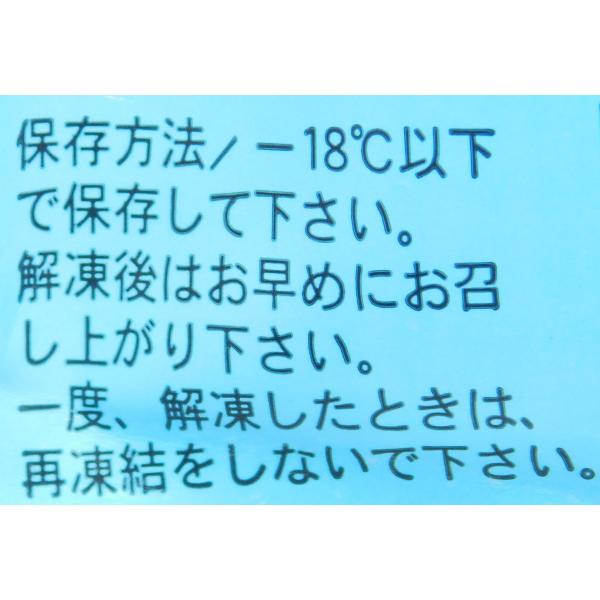 保存方法/－18℃以下
で保存して下さい。
解凍後はお早めにお召
し上がり下さい。
一度、解凍したときは、
再凍結をしないで下さい。